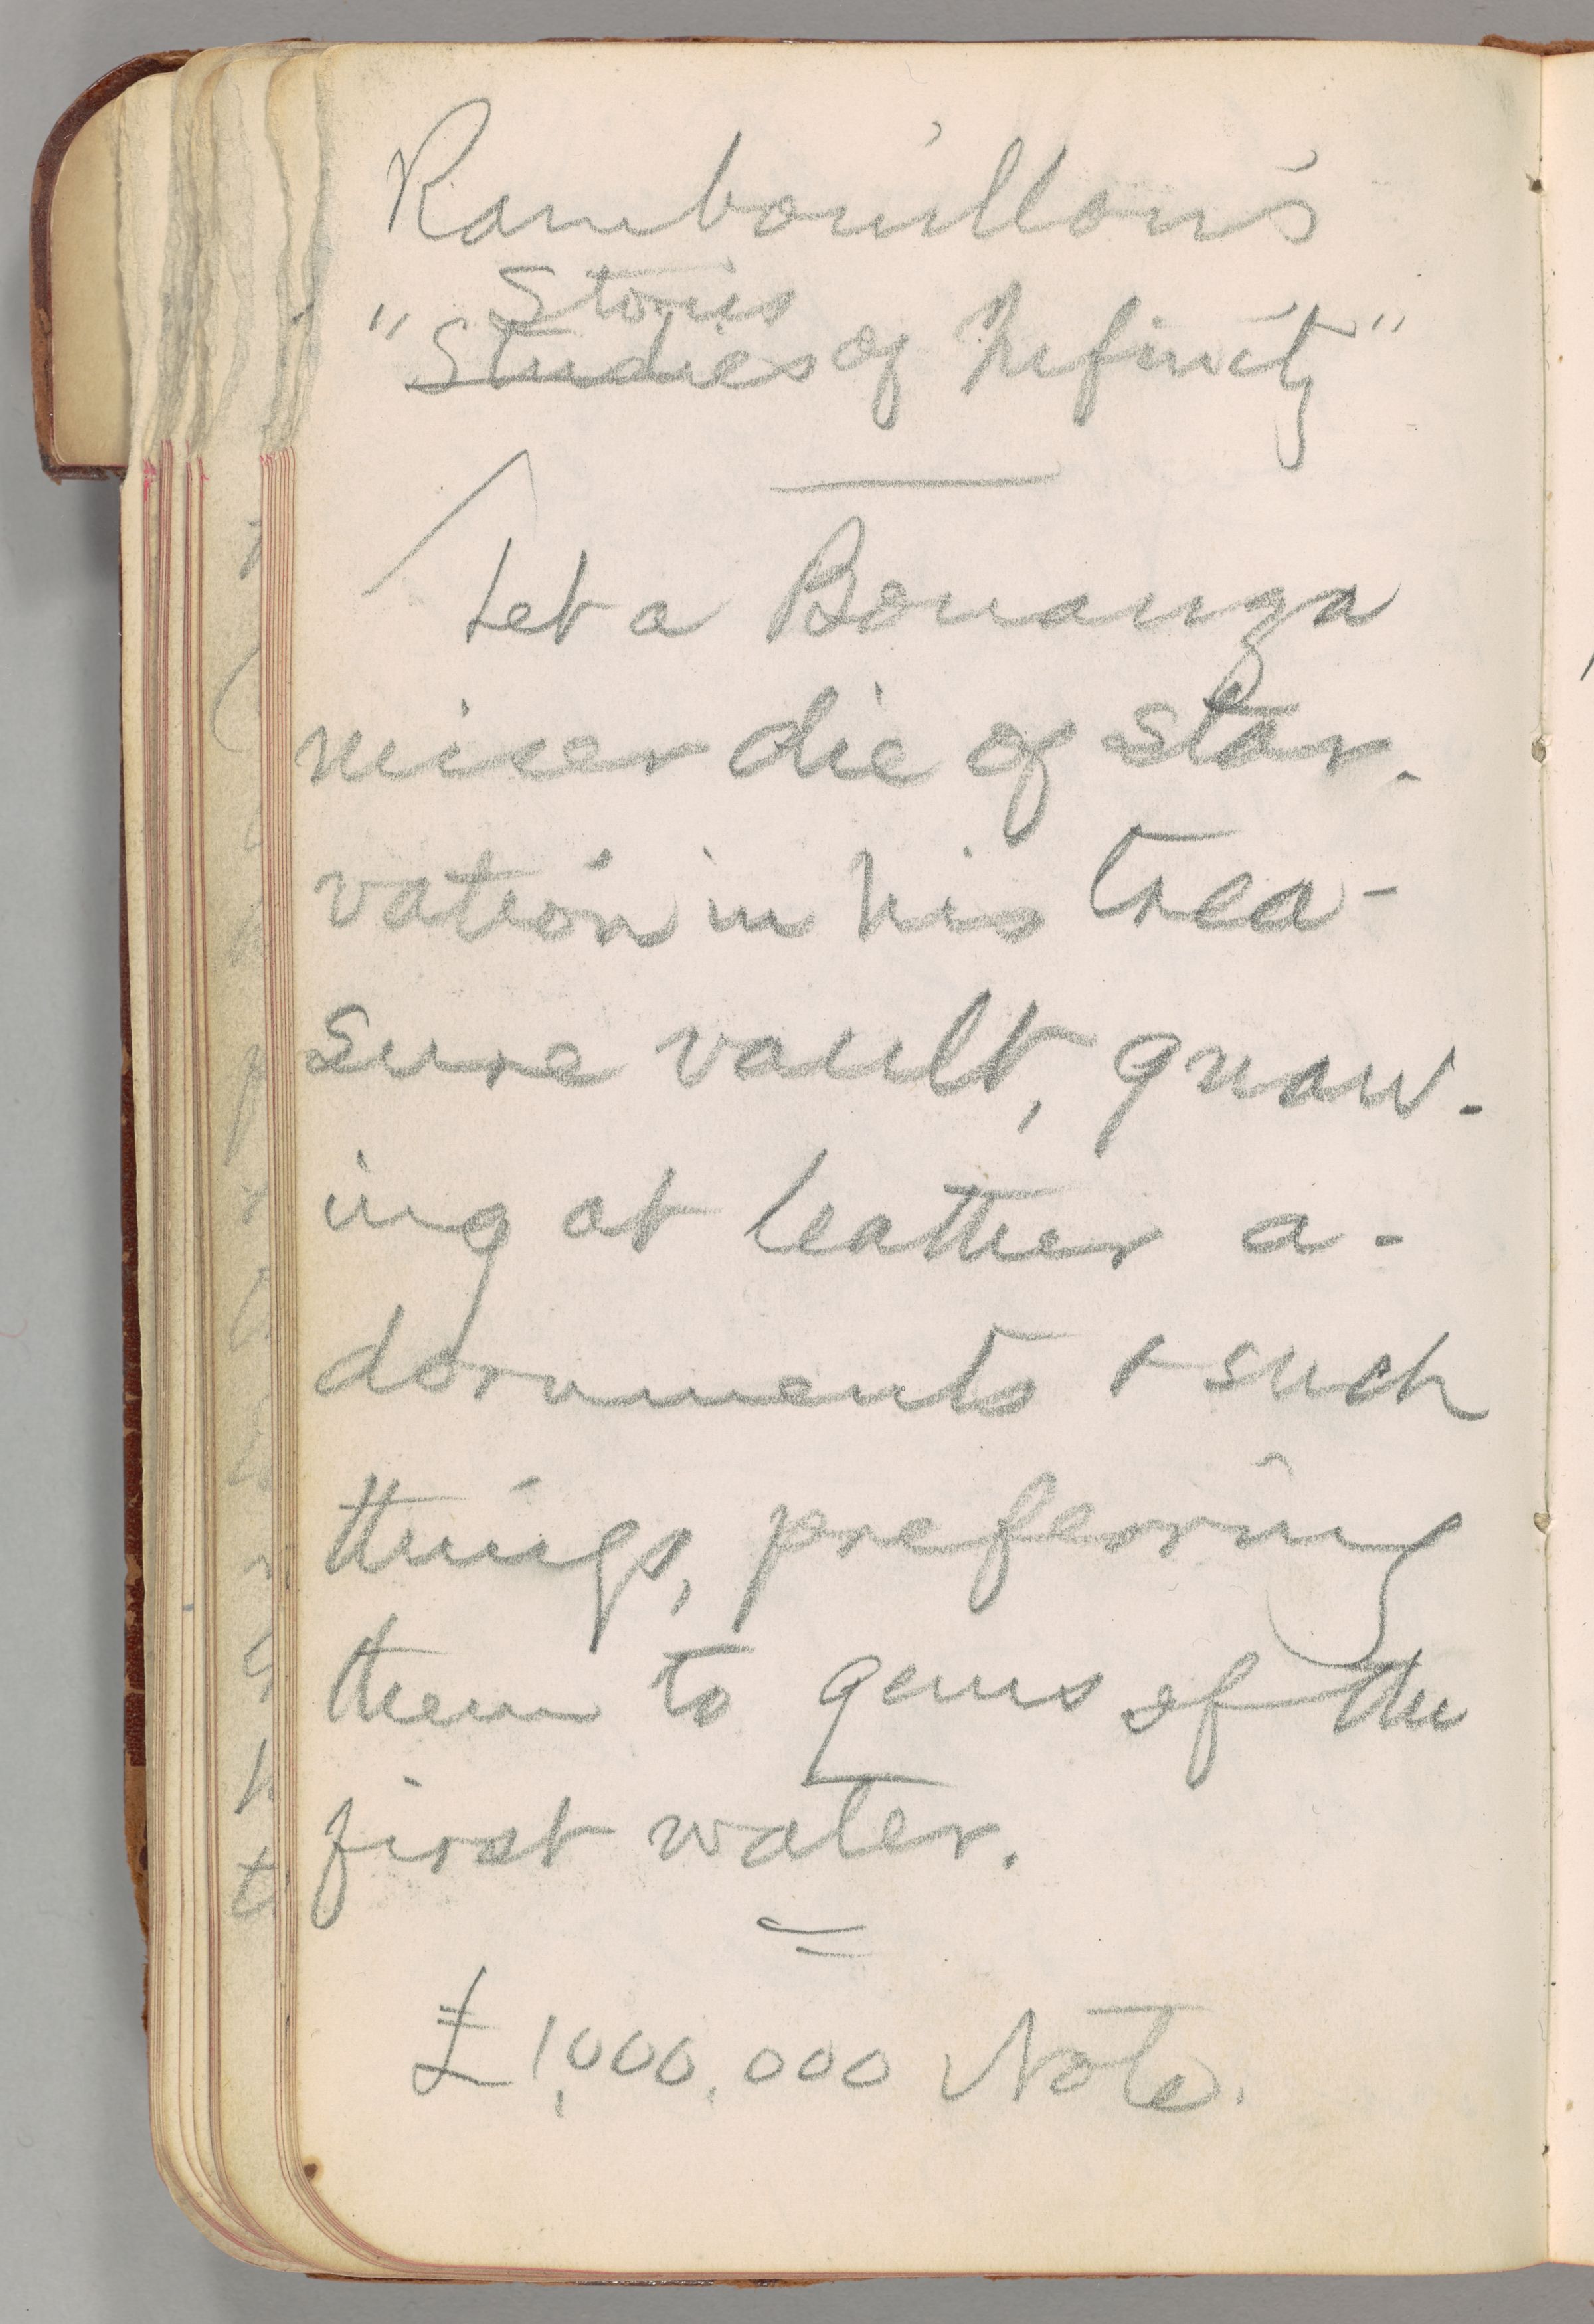 Rambouillon's
Stories
"Studies of Infinity"
Let a Bonanza
miser die of star-
vation in his trea-
sure vault, gnaw-
ing at leather a-
dornments & such
things, preferring
them to gems of the
first water.
£1,000,000 Note.